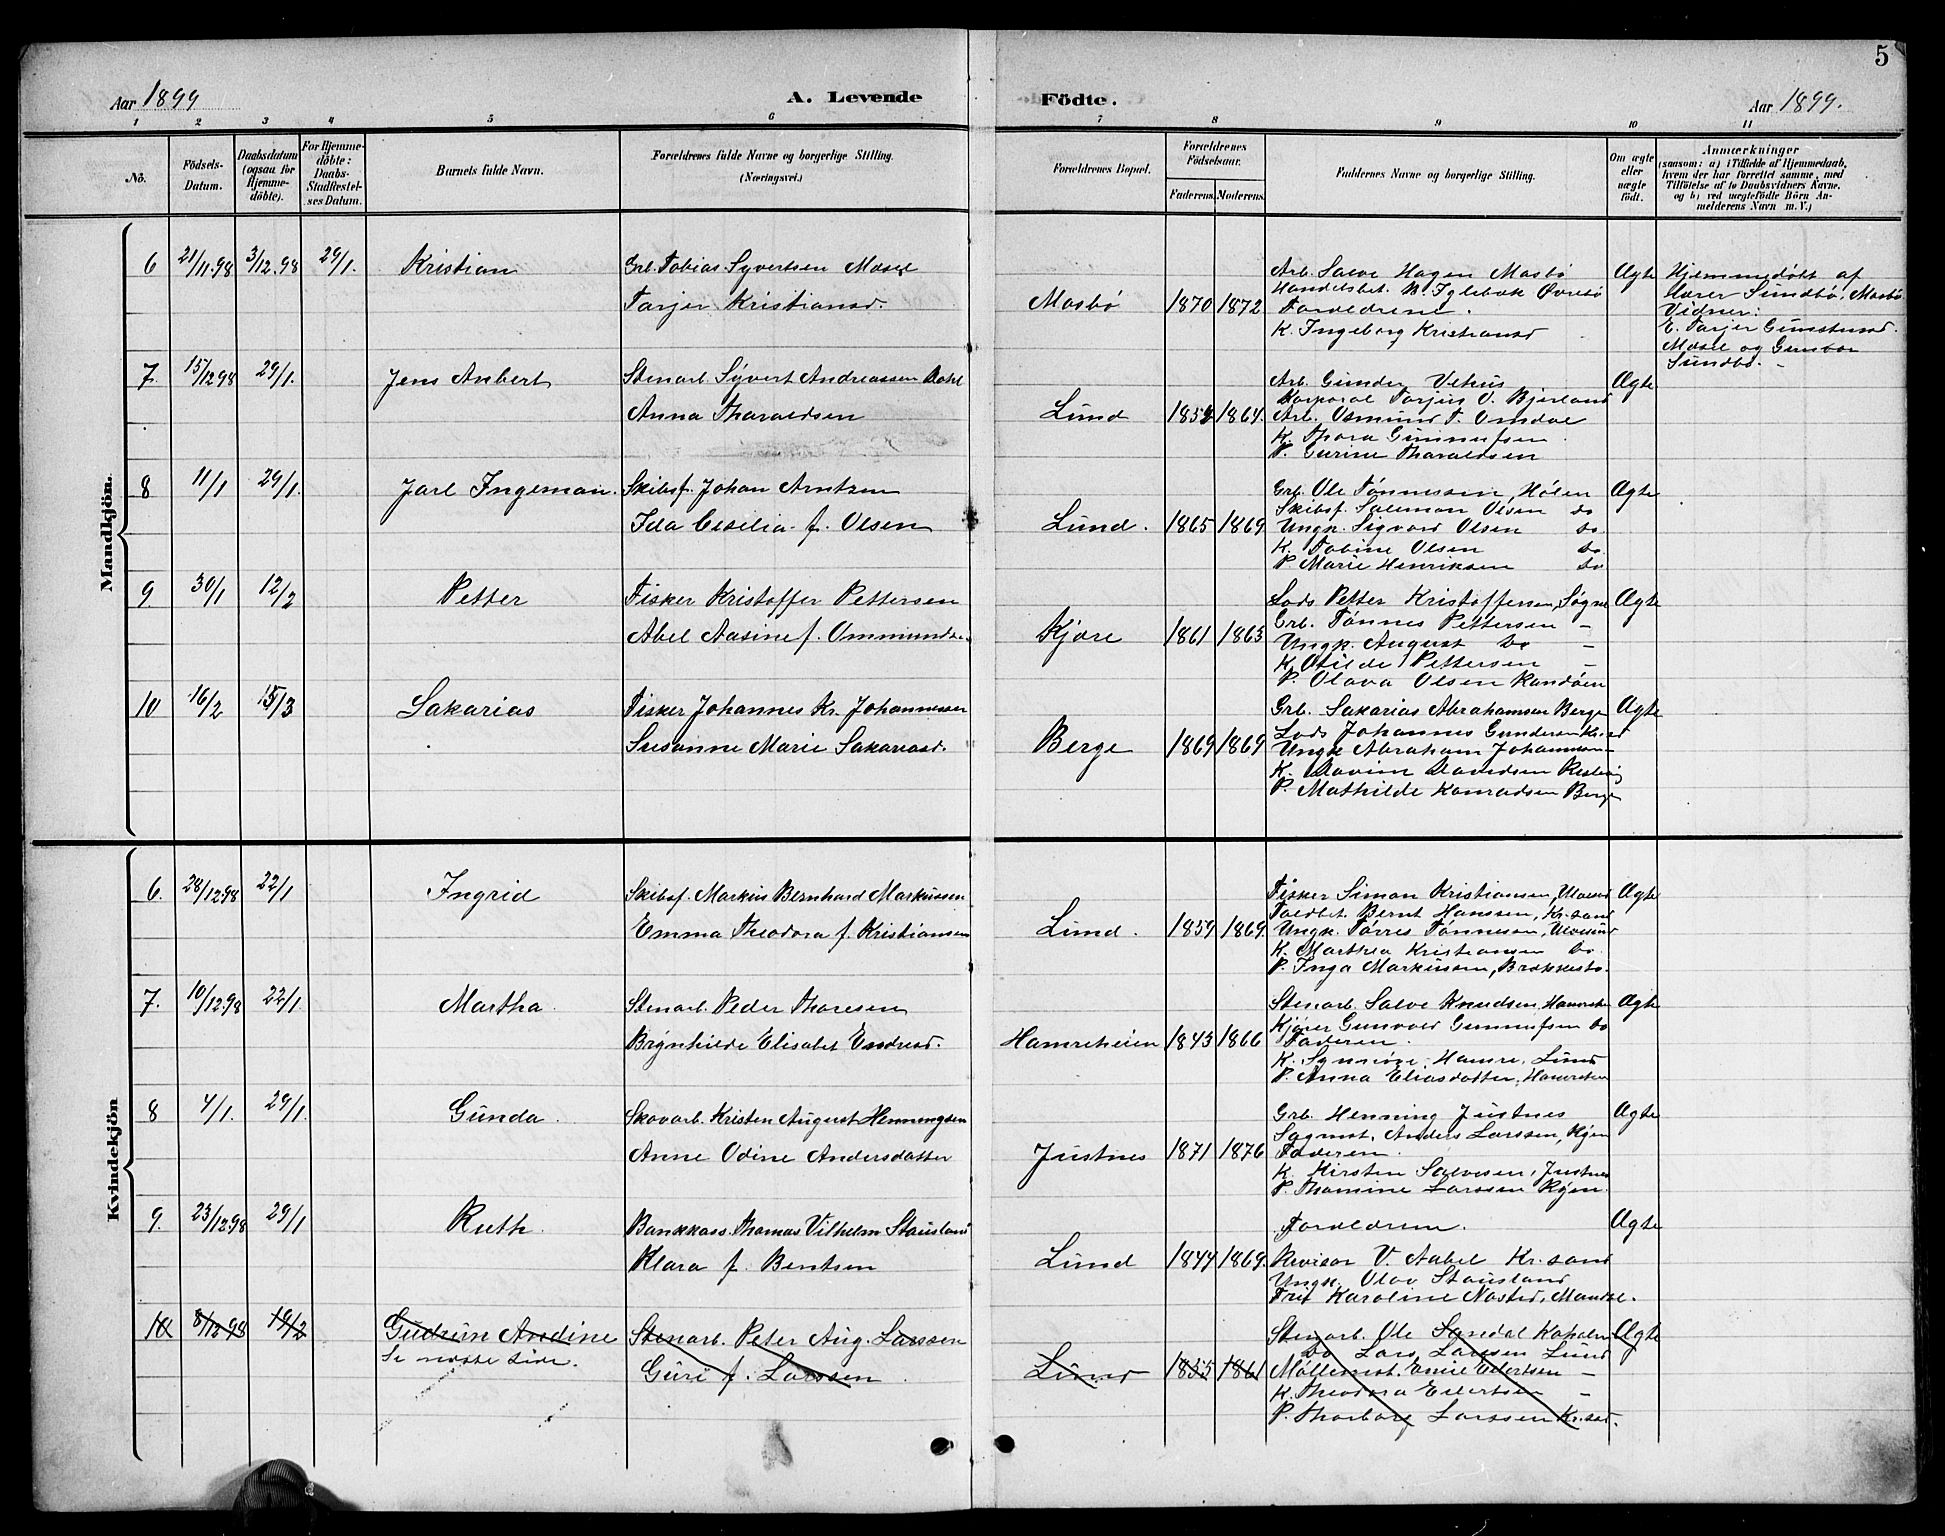 5
Aar 1899
A. Levende
Födte.
Aar 1899.
1 2 3 4 5 6 7 8 9 10 11
No.
Födsels-Datum.
Daabsdatum (ogsaa for Hjemme-döbte).
For Hjemme-döbte: Daabs-Stadfæstel-ses Datum.
Barnets fulde Navn.
Forældrenes fulde Navne og borgerlige Stilling. (Næringsvei.)
Forældrenes Bopæl.
Forældrenes Födselsaar.
Faderens. Moderens.
Faddernes Navne og borgerlige Stilling.
Om ægte eller uægte födt.
Anmærkninger
(saasom: a) i Tilfælde af Hjemmedaab, hvem der har forrettet samme, med Tilföielse af to Daabsvidners Navne, og b) ved uægtefödte Börn An-melderens Navn m. V.)
Mandkjön.
6 21/11.98 3/12.98 29/1. Kristian
Grb. Tobias Syvertsen Mosel
Tarjer Kristiansd.
Mosbö 1870 1872
Arb. Salve Hagen Mosbö
Handelsbet. N. Iglebæk Övrebö
Forældrene.
K. Ingeborg Kristiansd
Ægte
Hjemmedöbt af
Sundbö, Mosbö
Vidner:
E. Tarjer
Mosel og Gunvor
Sundbö.
7. 15/12 98 29/1. Jens Anbert
Stenarb. Syvert Andreassen Dahl
Anna Tharaldsen
Lund 1852 1864.
Arb. Gunder Vehus
Korporal Tarjus V. Bjerland
Arb. Osmund T. Omdal
K. Thora Gunnufsen
P. Gurine Tharaldsen
Ægte
8 11/1 29/1. Jarl Ingeman.
Skibsf. Johan Arntzen
Ida Cecilia f. Olsen
Lund. 1865 1869
Grb. Ole Tönnessen, Hölen
Skibsf. Salemon Olsen do
Ungk. Sigvard Olsen do
K. Tobine Olsen do
P. Marie Henriksen do
Ægte
9 30/1 12/2 Petter
Fisker Kristoffer Pettersen
Abel Aasine f. Ommundsen
Kjöre 1861 1863
Lods Petter Kristoffersen, Søgne
Grb. Tönnes Pettersen -
Ungk. August do -
K. Otilde Pettersen -
P. Olava Olsen Randöen
Ægte
10 16/2 15/3 Sakarias
Fisker Johannes Kr. Johannessen
Susanne Marie Sakariasd.
Berge 1869 1869
Grb. Sakarias Abrahamsen Berge
Lods Johannes Gundersen Kr.sd
Ungk Abraham Johannsen -
K. Davine Davidsen
P. Mathilde Konradsen Berge
Ægte
Kvindekjön
6. 28/12 98 22/1 Ingrid
Skibsf. Markus Bernhard Markussen
Emma Theodora f. Kristiansen
Lund. 1859 1869.
Fisker Simon Kristiansen, Ulvesund
Toldbet. Bernt Hanssen, Kr.sand
Ungk. Törres Tönnessen, Ulvesund
K. Marthea Kristiansen do.
P. Inga Markussen, Brækkestö.
Ægte
7. 10/12 98 22/1. Martha.
Stenarb. Peder Thoresen
Brynhilde Elisabet Endresd.
Hamreheien 1843 1866
Stenarb. Salve Knudsen, Hamrehei
Kjörer Gunvald Gunnufsen do
Faderen.
K. Synnöve Hamre, Lund
P. Anna Eliasdatter, Hamrehei
Ægte
8 4/1. 29/1. Gunda.
Skovarb. Kristen August Henningsen
Anne Odine Andersdatter
Justnes 1871 1876
Grb. Henning Justnes
Sagmst. Anders Larssen, Ryen
Faderen.
K. Kirsten Salvesen, Justnes
P. Thomine Larssen Ryen.
Ægte
9. 23/12 98 29/1 Ruth.
Bankkass. Thomas Vilhelm Stausland
Klara f. Bentsen
Lund 1844 1869.
Forældrene.
Revisor V. Aabel Kr.sand
Ungk. Olav Stausland
Frk Karoline Nosted, Mandal.
Ægte
10 8/12 98 19/2 Gudrun Andine
Se næste side.
Stenarb. Peter Aug. Larssen
Guri f. Larssen
Lund 1855 1861
Stenarb. Ole Sandal Kopalen
do Lars Larssen Lund
Möllemst. Emil Eilertsen -
K. Theodora Eilertsen -
P. Thorborg Larssen Kr.sd.
Ægte